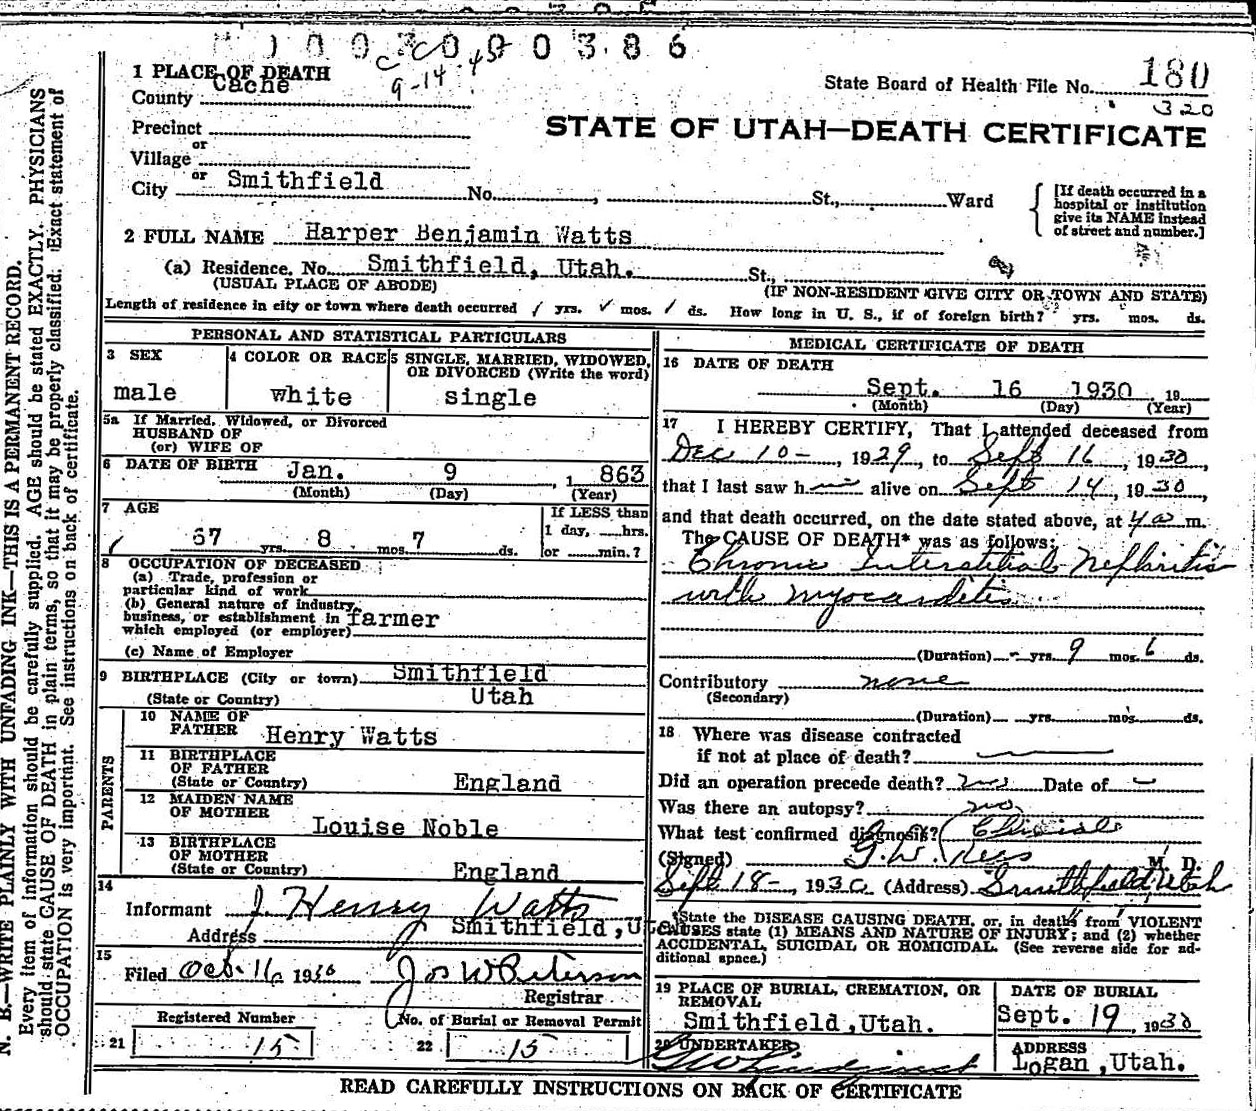 1 PLACE OF DEATH
County Cache
9-14-45
State Board of Health File No. 180
320
STATE OF UTAH—DEATH CERTIFICATE
Precinct
or
Village
or
City Smithfield No. , St., Ward
[If death occurred in a
hospital or institution
give its NAME instead
of street and number.]
2 FULL NAME Harper Benjamin Watts
(a) Residence. No. Smithfield, Utah. St.,
(USUAL PLACE OF ABODE) (IF NON-RESIDENT GIVE CITY OR TOWN AND STATE)
Length of residence in city or town where death occurred yrs. mos. ds. How long in U. S., if of foreign birth? yrs. mos. ds.
PERSONAL AND STATISTICAL PARTICULARS
3 SEX
male
4 COLOR OR RACE
white
5 SINGLE, MARRIED, WIDOWED,
OR DIVORCED (Write the word)
single
5a If Married, Widowed, or Divorced
HUSBAND OF
(or) WIFE OF
6 DATE OF BIRTH Jan. 9 , 1 863
(Month) (Day) (Year)
7 AGE
67 yrs. 8 mos. 7 ds.
If LESS than
1 day, hrs.
or min.?
8 OCCUPATION OF DECEASED
(a) Trade, profession or
particular kind of work
(b) General nature of industry,
business, or establishment in farmer
which employed (or employer)
(c) Name of Employer
9 BIRTHPLACE (City or town) Smithfield
(State or Country) Utah
PARENTS
10 NAME OF
FATHER Henry Watts
11 BIRTHPLACE
OF FATHER
(State or Country) England
12 MAIDEN NAME
OF MOTHER
Louise Noble
13 BIRTHPLACE
OF MOTHER
(State or Country) England
14
Informant J. Henry Watts
Address Smithfield, Utah
15
Filed Oct. 16, 1930 Jos W Peterson
Registrar
Registered Number
21 15
No. of Burial or Removal Permit
22 15
MEDICAL CERTIFICATE OF DEATH
16 DATE OF DEATH
Sept. 16 1930 19
(Month) (Day) (Year)
17 I HEREBY CERTIFY, That I attended deceased from
Dec 10 - , 1929, to Sept 16 , 1930,
that I last saw him alive on Sept 14, 1930,
and that death occurred, on the date stated above, at 4 a m.
The CAUSE OF DEATH* was as follows:
Chronic Interstitial Nephritis
with myocarditis
(Duration) - yrs. 9 mos. 6 ds.
Contributory none
(Secondary)
(Duration) yrs. mos. ds.
18 Where was disease contracted
if not at place of death?
Did an operation precede death? no Date of -
Was there an autopsy? no
What test confirmed diagnosis? Clinical
(Signed) G.W. M. D.
Sept 18 - , 1930 (Address) Smithfield, Utah
*State the DISEASE CAUSING DEATH, or, in deaths from VIOLENT
CAUSES state (1) MEANS AND NATURE OF INJURY; and (2) whether
ACCIDENTAL, SUICIDAL OR HOMICIDAL. (See reverse side for ad-
ditional space.)
19 PLACE OF BURIAL, CREMATION, OR
REMOVAL
Smithfield, Utah.
DATE OF BURIAL
Sept. 19 , 1930
20 UNDERTAKER
ADDRESS
Logan, Utah.
READ CAREFULLY INSTRUCTIONS ON BACK OF CERTIFICATE
N. B.—WRITE PLAINLY WITH UNFADING INK—THIS IS A PERMANENT RECORD.
Every item of information should be carefully supplied. AGE should be stated EXACTLY. PHYSICIANS
should state CAUSE OF DEATH in plain terms, so that it may be properly classified. Exact statement of
OCCUPATION is very important. See instructions on back of certificate.